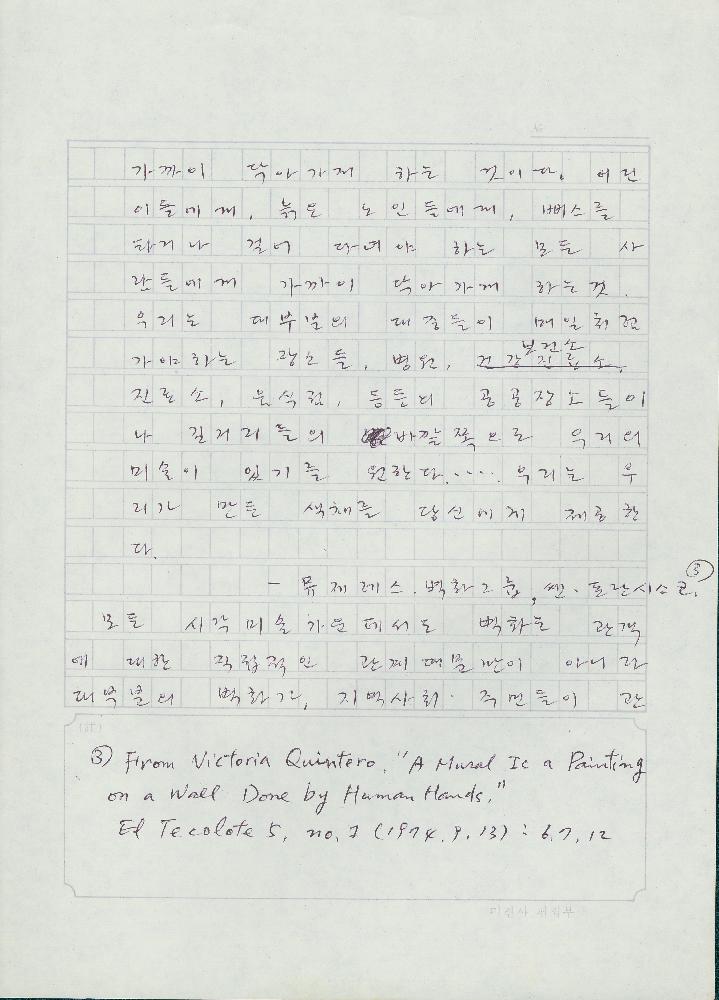 가까이 닥아가게 하는 것이다. 어린
이들에게, 늙은 노인들에게, 뻐스를
타거나 걸어 다녀야 하는 모든 사
람들에게 가까이 닥아가게 하는것.
우리는 대부분의 대중들이 매일처럼
보건소
가야하는 광소들, 병원, 건강진료소,
진료소, 음식점, 등등의 공공장소들이
나 길거리들의 바깥쪽으로 우리의
미술이 있기를 원한다..... 우리는 우
리가 만든 색채를 당신에게 제공한
다.
— 뮤제레스.벽화그룹, 쌘.프란시스코. ③
모든 시각미술가운데서도 벽화는 관객
에 대한 직접적인 관계여물만이 아니라
대부분의 벽화가, 지역사회. 주민들이 관
③ From Victoria Quintero, "A Mural Is a Painting
on a Wall Done by Human Hands,"
El Tecolote 5, no. 1 (1974. 9. 13) : 6, 7, 12